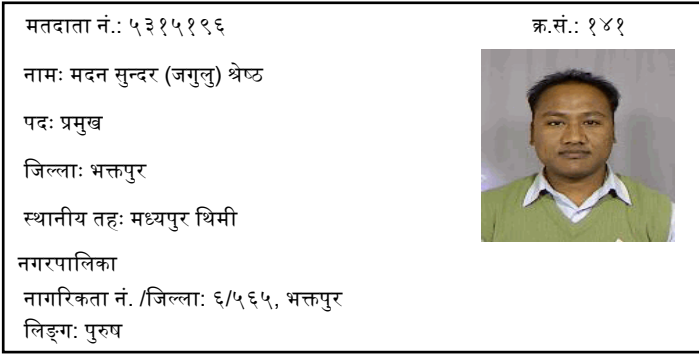 मतदाता नं.: ५३१५१९६ क्र.सं.: १४१
नामः मदन सुन्दर (जगुलु) श्रेष्ठ
पदः प्रमुख
जिल्लाः भक्तपुर
स्थानीय तहः मध्यपुर थिमी
नगरपालिका
नागरिकता नं. /जिल्ला: ६/५६५, भक्तपुर
लिङ्ग: पुरुष